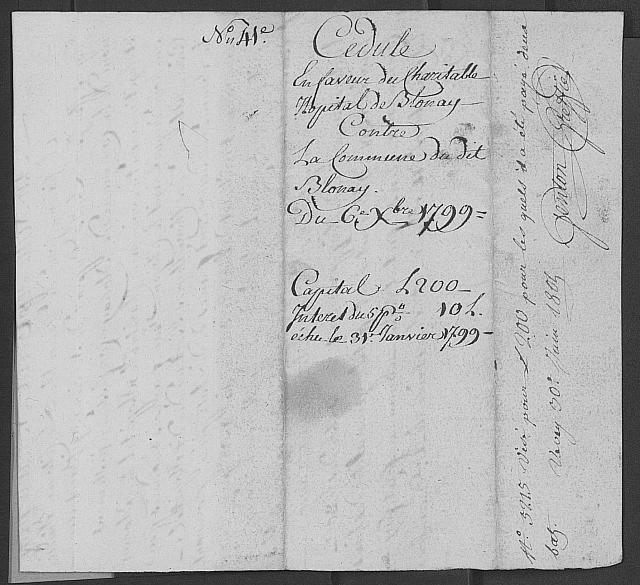 No 41e
Cedule
En faveur du Charitable
Hopital de Blonay
Contre
La Commune du dit
Blonay.
Du 6e Xbre 1799 =
Capital L 200 -
Interet du 5 p% 10 L.
échu le 31e Janvier 1799 -
No 5215 Visé pour L 200 pour les quels il a été payé deux
baz. Vevey 30e Juin 1803
Genton Greffier